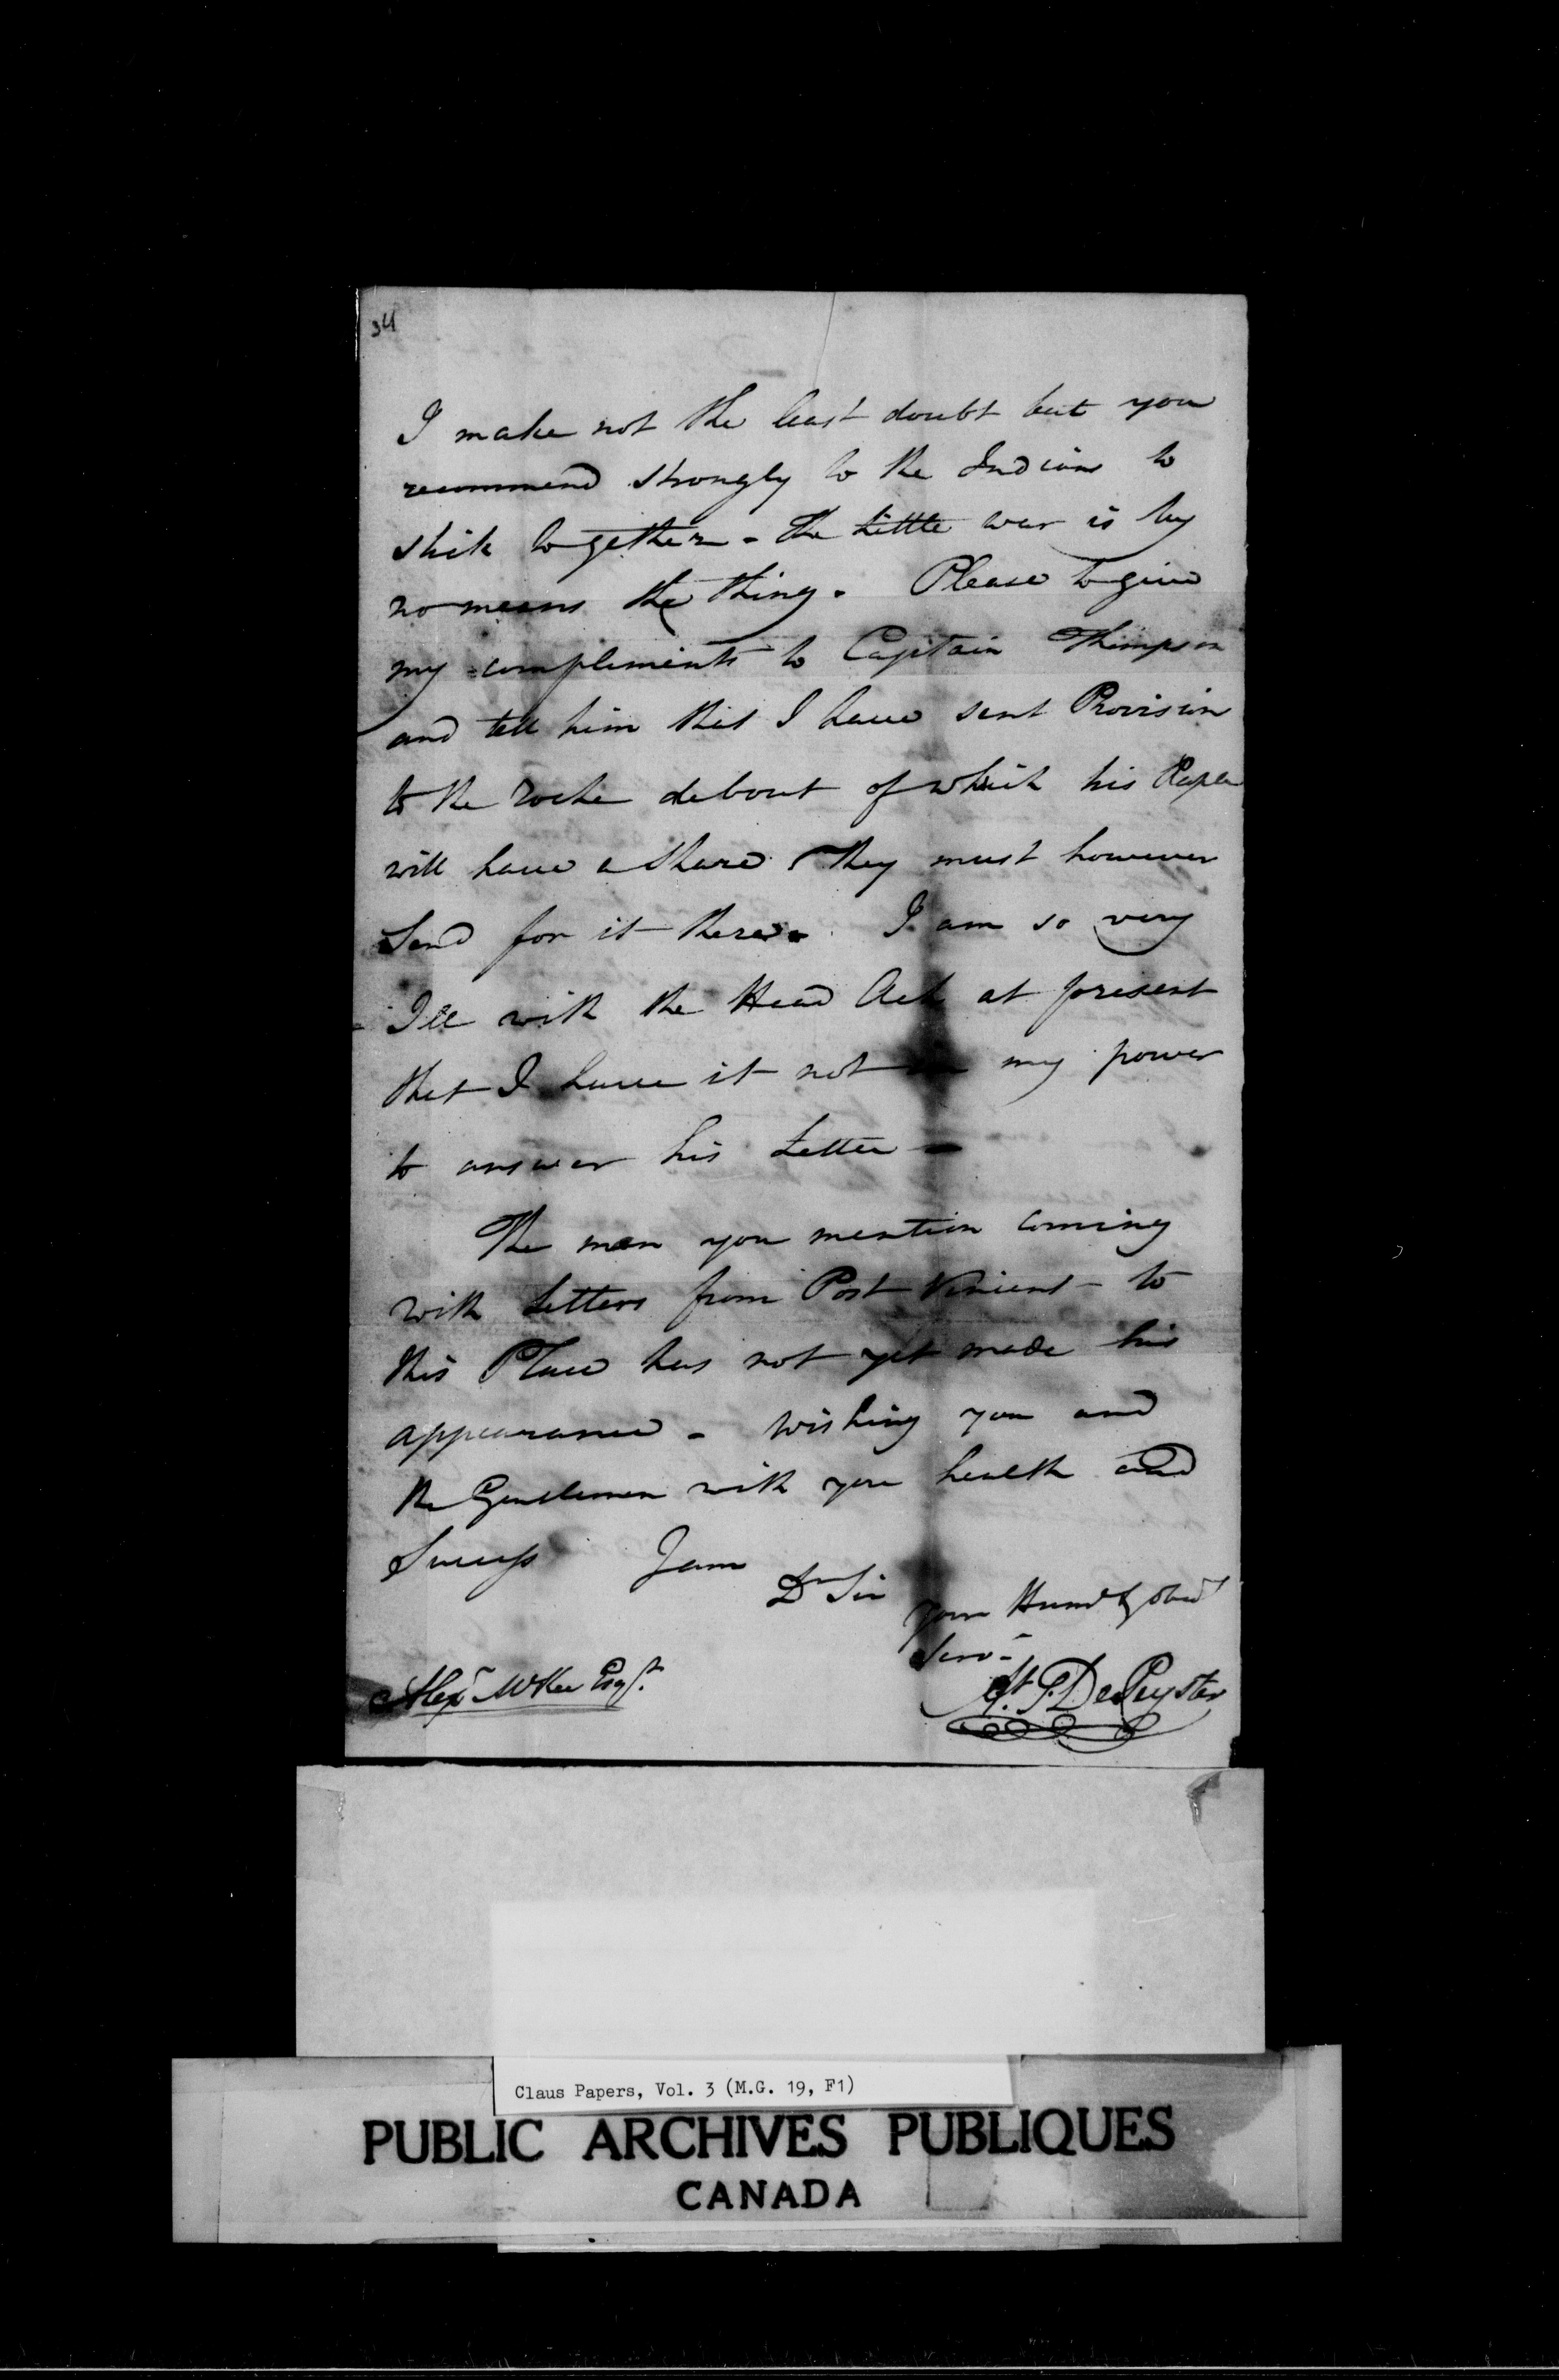 34
I make not the least doubt but you
recommend strongly to the Indians to
stick together - the Little war is by
no means the thing. Please to give
my compliments to Captain Thompson
and tell him that I have sent Provision
to the roche debout of which his People
will have a Share They must however
Send for it there. I am so very
Ill with the Head Ach at present
that I have it not my power
to answer his Letter
The man you mention coming
with Letters from Post Vincent to
this Place has not yet made his
appearance - Wishing you and
the Gentlemen with you health and
Success I am
Dr Sir
your Humb & Obed
Serv
At. S. DePeyster
Alexr McKee Esqr.
Claus Papers, Vol. 3 (M.G. 19, F1)
PUBLIC ARCHIVES PUBLIQUES
CANADA